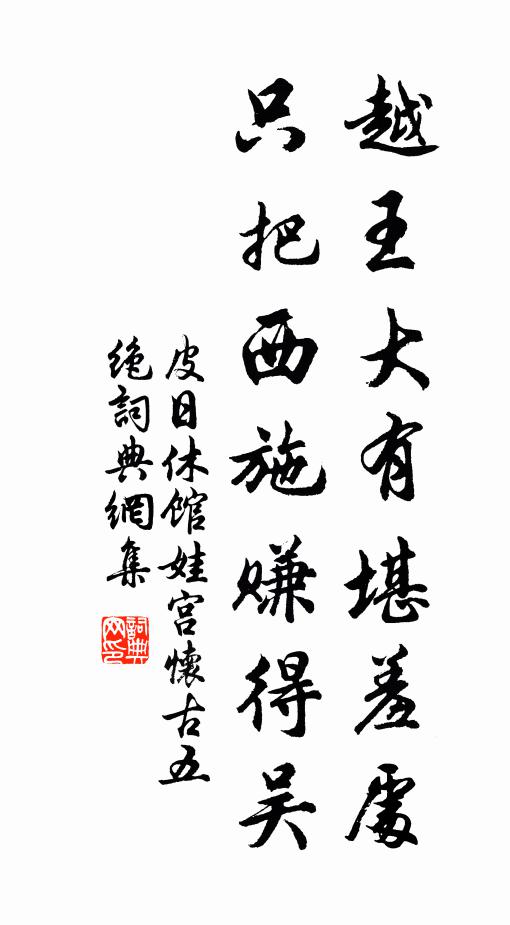 越王大有堪羞處
只把西施賺得吳
皮日休館娃宮懷古五
絕詞典網集
詞典網印